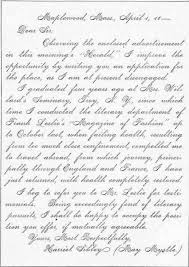 Maplewood, Mass., April 1, 18—
Dear Sir:
Observing the enclosed advertisement
in this morning's "Herald," I improve the
opportunity by writing you an application for
the place, as I am at present disengaged.
I graduated four years ago at Mrs. Wil-
lard's Seminary, Troy, N. Y., since which
time I conducted the literary department of
Frank Leslie's "Magazine of Fashion" up
to October last, when failing health, resulting
from too much close confinement, compelled me
to travel abroad, from which journey, princi-
pally through England and France, I have
just returned, with health completely restored.
I beg to refer you to Mr. Leslie for testi-
monials. Being exceedingly fond of literary
pursuits, I shall be happy to occupy the posi-
tion you offer, if mutually agreeable.
Yours, Most Respectfully,
Harriet Sibley (May Myrtle.)